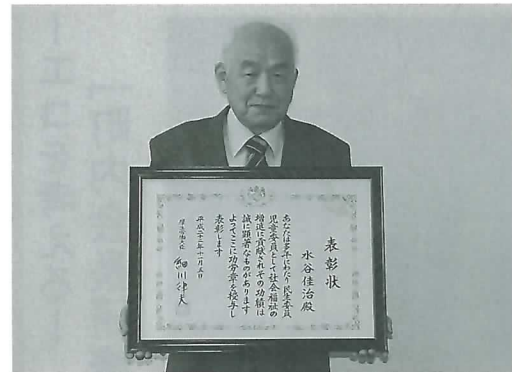 表彰状
水谷佳治殿
あなたは多年にわたり民生委員
児童委員として社会福祉の
増進に貢献されその功績は
誠に顕著なものがあります
よってここに功労章を授与し
表彰します
平成二十二年十一月五日
厚生労働大臣
細川律夫